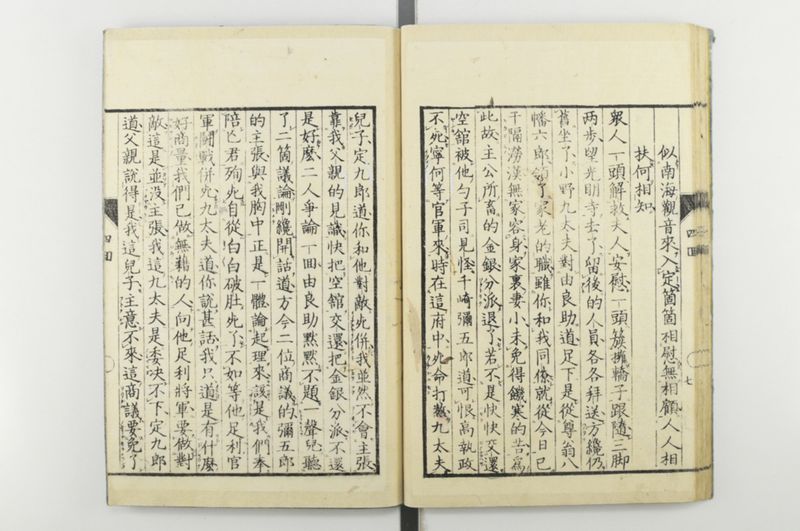 似南海觀音來入定箇箇相慰無相顧人人相
扶何相知
衆人一頭解救夫人安慰一頭簇擁轎子跟隨三脚
两步望光明寺去了留後的人員各各拜送方纔仍
舊坐了小野九太夫對由良助道足下是從尊翁八
幡六郎領了家老的職雖你和我同僚就從今日已
干隔澇漢無家容身家裏妻小未免得饑寒的苦爲
此故主公所畜的金銀分派退了若不是快快交還
空舘被他勾子司見怪千崎彌五郎道可恨高執政
不死寧何等官軍來時在這府中死命打熬九太夫
兒子定九郎道你和他對敵死併我並然不會主張
靠我父親的見識快把空舘交還把金銀分派不還
是好麽二人爭論一回由良助黙黙不題一聲兒聽
了二箇議論剛纔開話道方今二位商議的彌五郎
的主張與我胸中正是一體論起理來該是我們奉
陪亡君殉死自從白白破肚死了不如等他足利官
軍鬪戰併死九太夫道你説甚話我只道是有什麽
好商量我們已做無籍的人向他足利將軍要做對
敵這是並没主張我這九太夫是委决不下定九郎
道父親説得是我這兒子主意不來這商議要免了
四回
七
四回